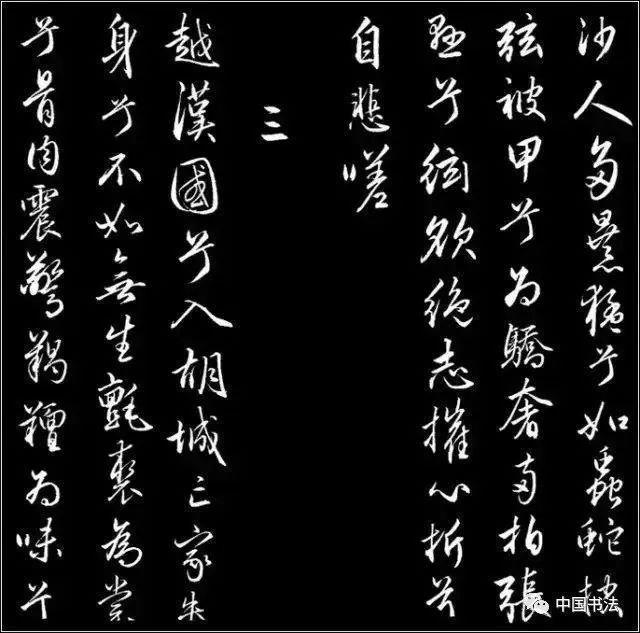 沙人多暴猛兮如蟲蛇控
弦被甲兮為驕奢兩拍張
懸兮弦欲絕志摧心折兮
自悲嗟
三
越漢國兮入胡城亡家失
身兮不如無生氈裘為裳
兮骨肉震驚羯羶為味兮
中国书法